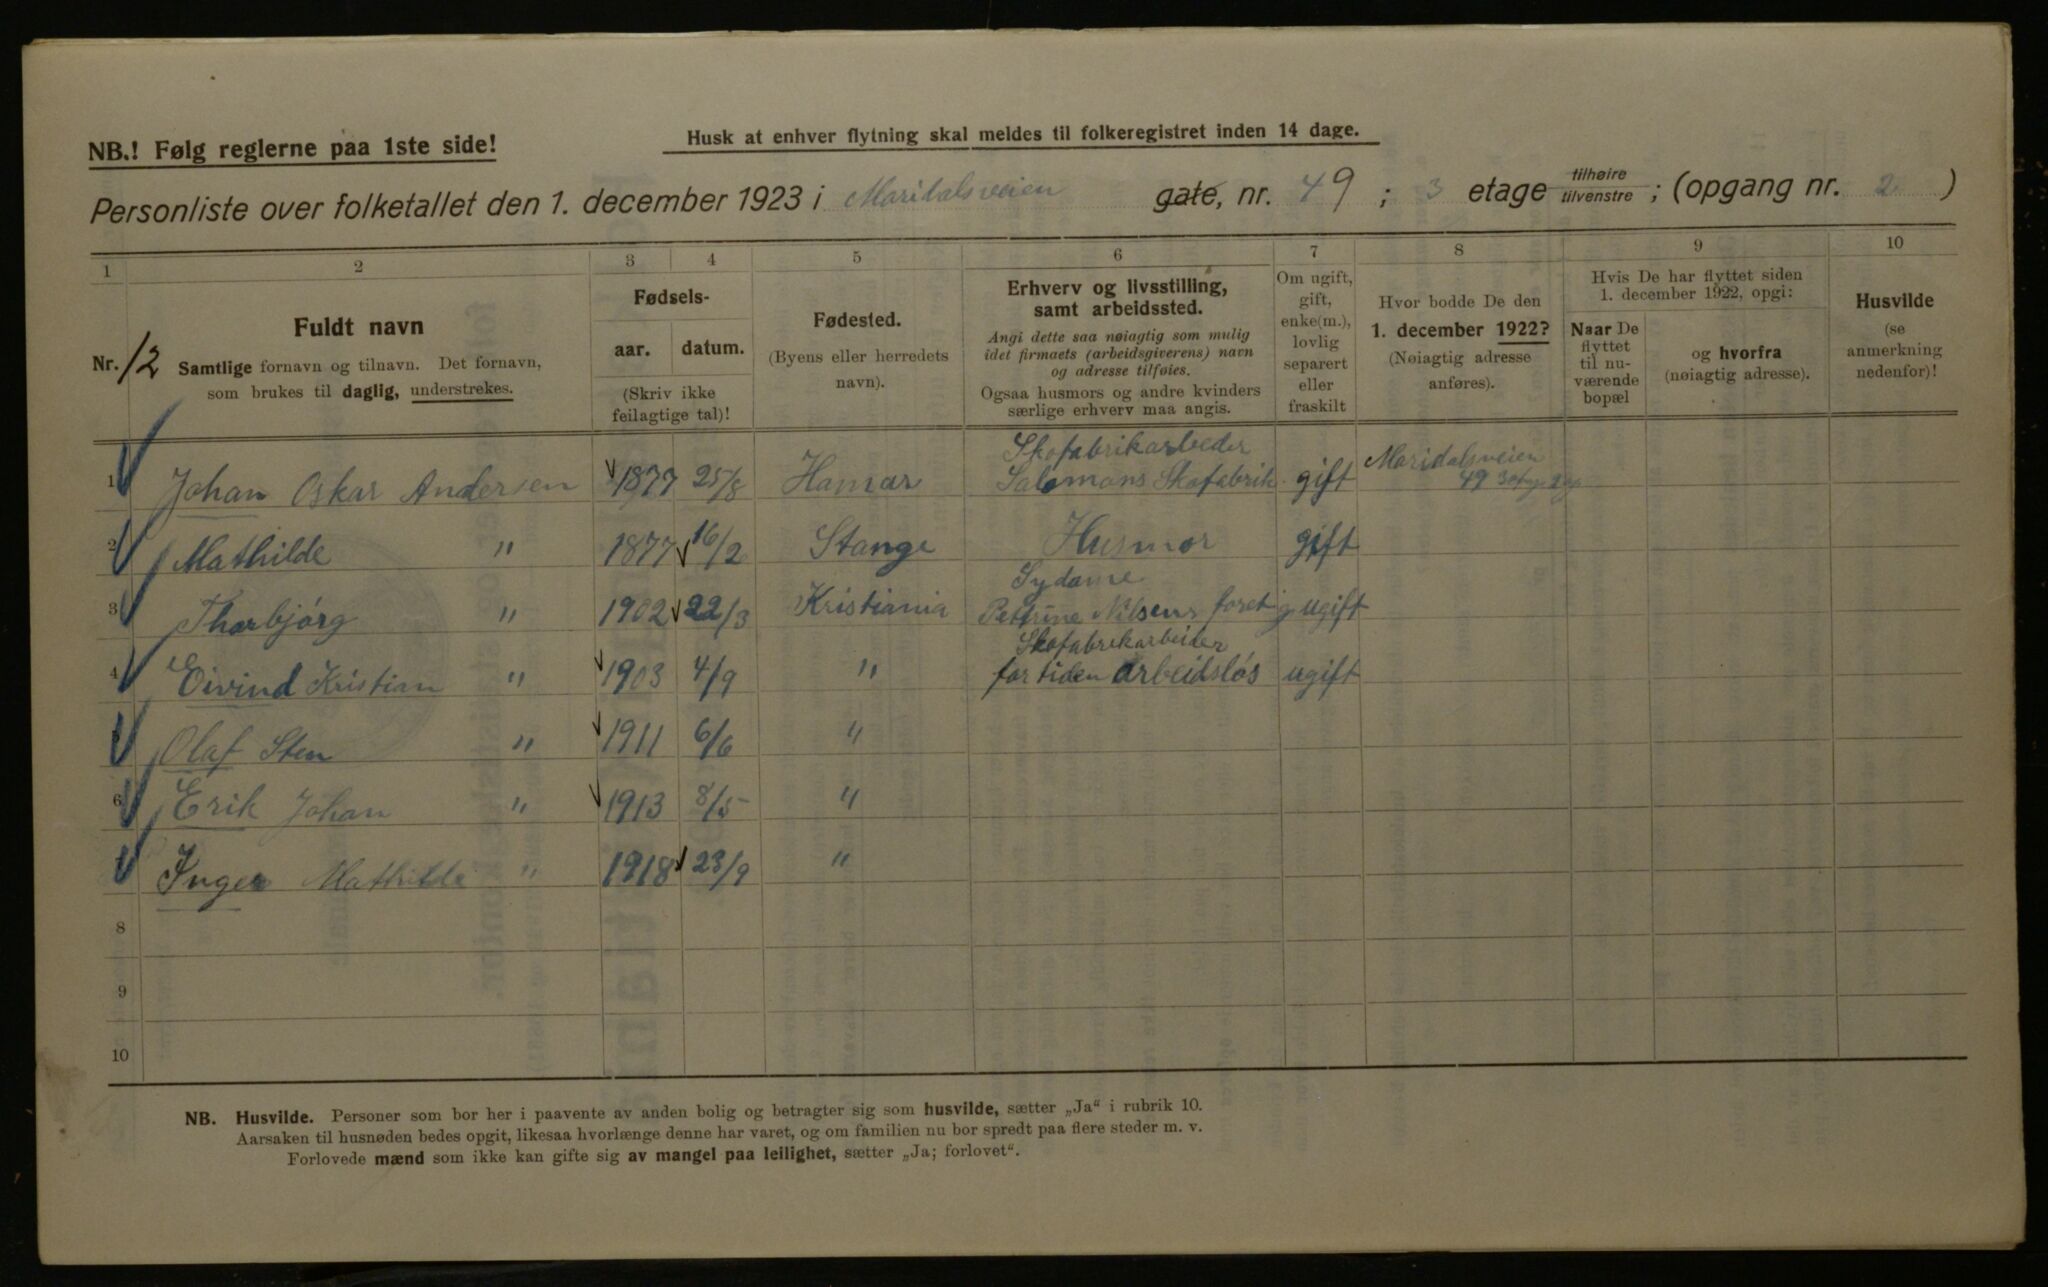 NB.! Følg reglerne paa 1ste side!
Husk at enhver flytning skal meldes til folkeregistret inden 14 dage.
Personliste over folketallet den 1. december 1923 i Maridalsveien gate, nr. 49 ; 3 etage tilhøire tilvenstre ; (opgang nr. 2 )
1 2 3 4 5 6 7 8 9 10
Nr. 12
Fuldt navn
Samtlige fornavn og tilnavn. Det fornavn,
som brukes til daglig, understrekes.
Fødsels-
aar. datum.
(Skriv ikke
feilagtige tal)!
Fødested.
(Byens eller herredets
navn).
Erhverv og livsstilling,
samt arbeidssted.
Angi dette saa nøiagtig som mulig
idet firmaets (arbeidsgiverens) navn
og adresse tilføies.
Ogsaa husmors og andre kvinders
særlige erhverv maa angis.
Om ugift,
gift,
enke(m.),
lovlig
separert
eller
fraskilt
Hvor bodde De den
1. december 1922?
(Nøiagtig adresse
anføres).
Hvis De har flyttet siden
1. december 1922, opgi:
Naar De
flyttet
til nu-
værende
bopæl
og hvorfra
(nøiagtig adresse).
Husvilde
(se
anmerkning
nedenfor)!
Skofabrikarbeder
1 Johan Oskar Andersen 1877 25/8 Hamar Salomons Skofabrik gift Maridalsveien
49 3 etg 2 op
2 Mathilde " 1877 16/2 Stange Husmor gift
Sydame
3 Thorbjörg " 1902 22/3 Kristiania Pettrine Nilsens foretg ugift
Skofabrikarbeider
4 Eivind Kristian " 1903 4/9 " for tiden arbeidslös ugift
Olaf Sten " 1911 6/6 "
6 Erik Johan " 1913 8/5 "
Inger Mathilde " 1918 23/9 "
8
9
10
NB. Husvilde. Personer som bor her i paavente av anden bolig og betragter sig som husvilde, sætter „Ja“ i rubrik 10.
Aarsaken til husnøden bedes opgit, likesaa hvorlænge denne har varet, og om familien nu bor spredt paa flere steder m. v.
Forlovede mænd som ikke kan gifte sig av mangel paa leilighet, sætter „Ja; forlovet“.